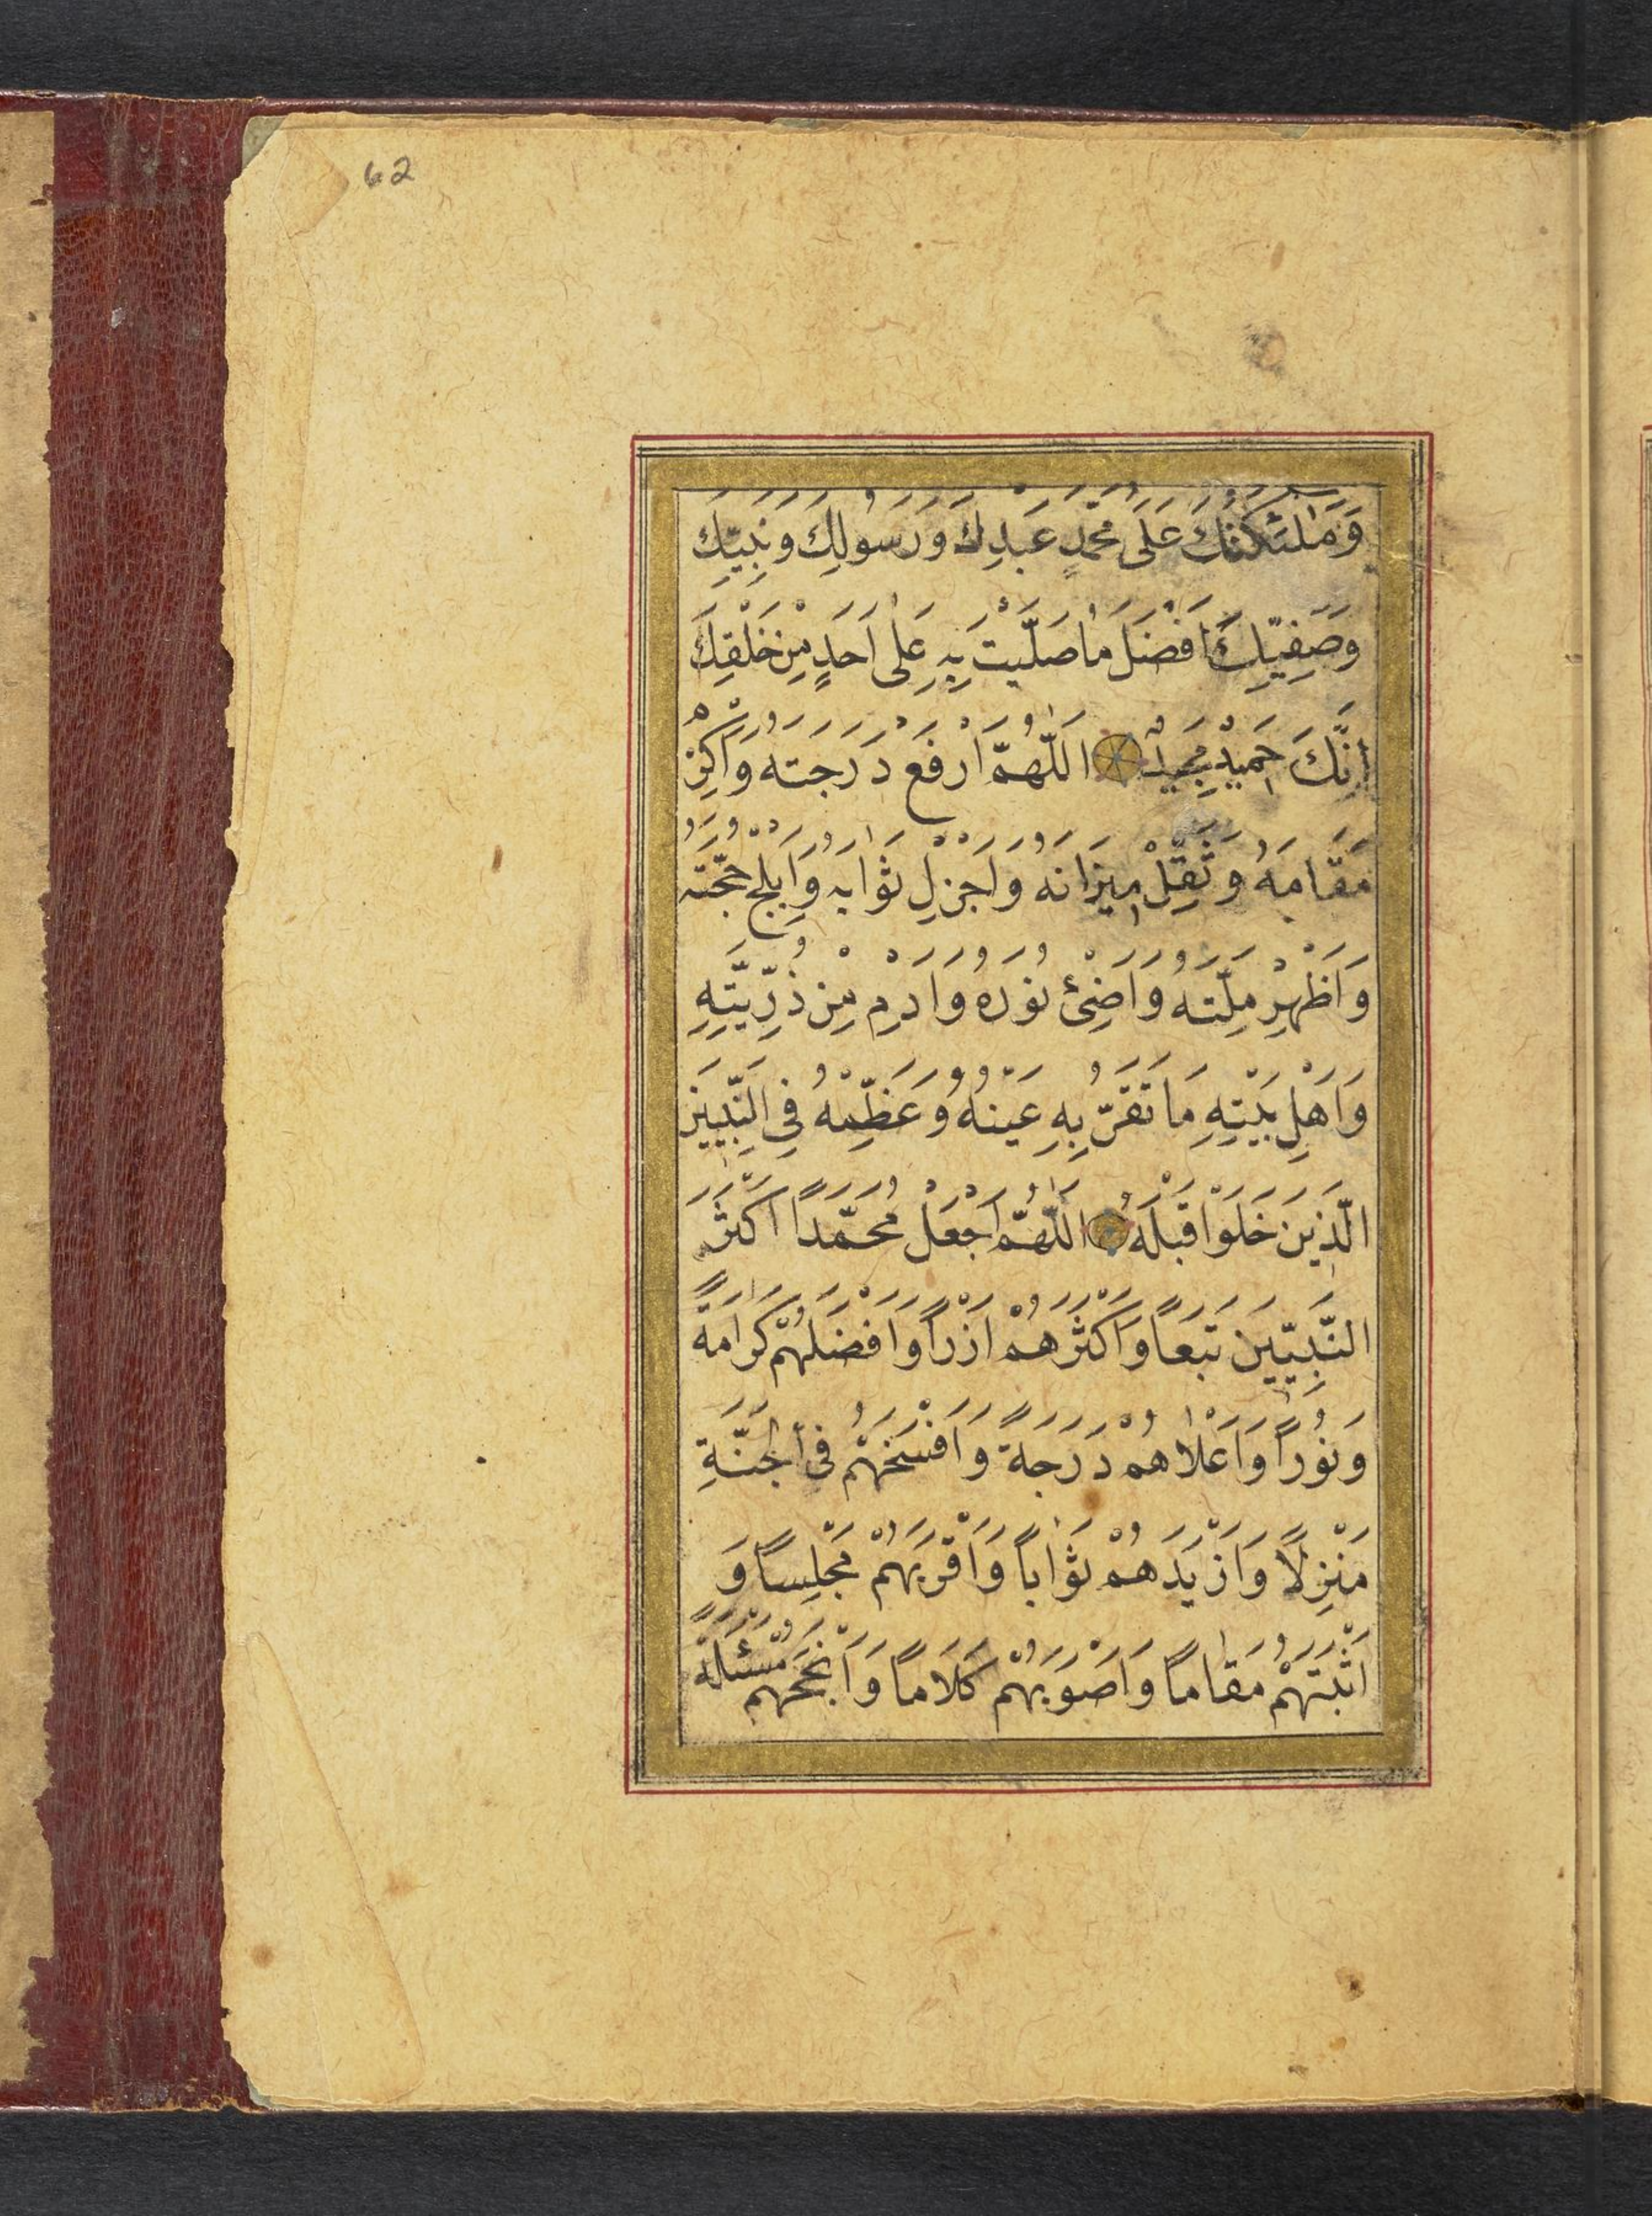 62
وَمَلٰئِكَتُكَ عَلَى مُحَمَّدٍ عَبْدِكَ وَرَسُولِكَ وَنَبِيِّكَ
وَصَفِيِّكَ اَفْضَلَ مَا صَلَّيْتَ بِهِ عَلٰى اَحَدٍ مِنْ خَلْقِكَ
اِنَّكَ حَمِيْدٌ مَجِيْدٌ اَللّٰهُمَّ ارْفَعْ دَرَجَتَهُ وَاَكْرِمْ
مَقَامَهُ وَثَقِّلْ مِيزَانَهُ وَاَجْزِلْ ثَوَابَهُ وَاَبْلِجْ حُجَّتَهُ
وَاَظْهِرْ مِلَّتَهُ وَاَضِئْ نُوْرَهُ وَاَدِمْ مِنْ ذُرِّيَّتِهِ
وَاَهْلِ بَيْتِهِ مَا تَقَرُّ بِهِ عَيْنُهُ وَعَظِّمْهُ فِي النَّبِيِّينَ
الَّذِينَ خَلَوْا قَبْلَهُ اَللّٰهُمَّ اجْعَلْ مُحَمَّدًا اَكْثَرَ
النَّبِيِّينَ تَبَعًا وَاَكْثَرَهُمْ اَزْرًا وَاَفْضَلَهُمْ كَرَامَةً
وَنُوْرًا وَاَعْلَاهُمْ دَرَجَةً وَاَفْسَحَهُمْ فِى الْجَنَّةِ
مَنْزِلًا وَاَزْيَدَهُمْ ثَوَابًا وَاَقْرَبَهُمْ مَجْلِسًا وَ
اَثْبَتَهُمْ مَقَامًا وَاَصْوَبَهُمْ كَلَامًا وَاَنْجَحَهُمْ مَسْئَلَةً